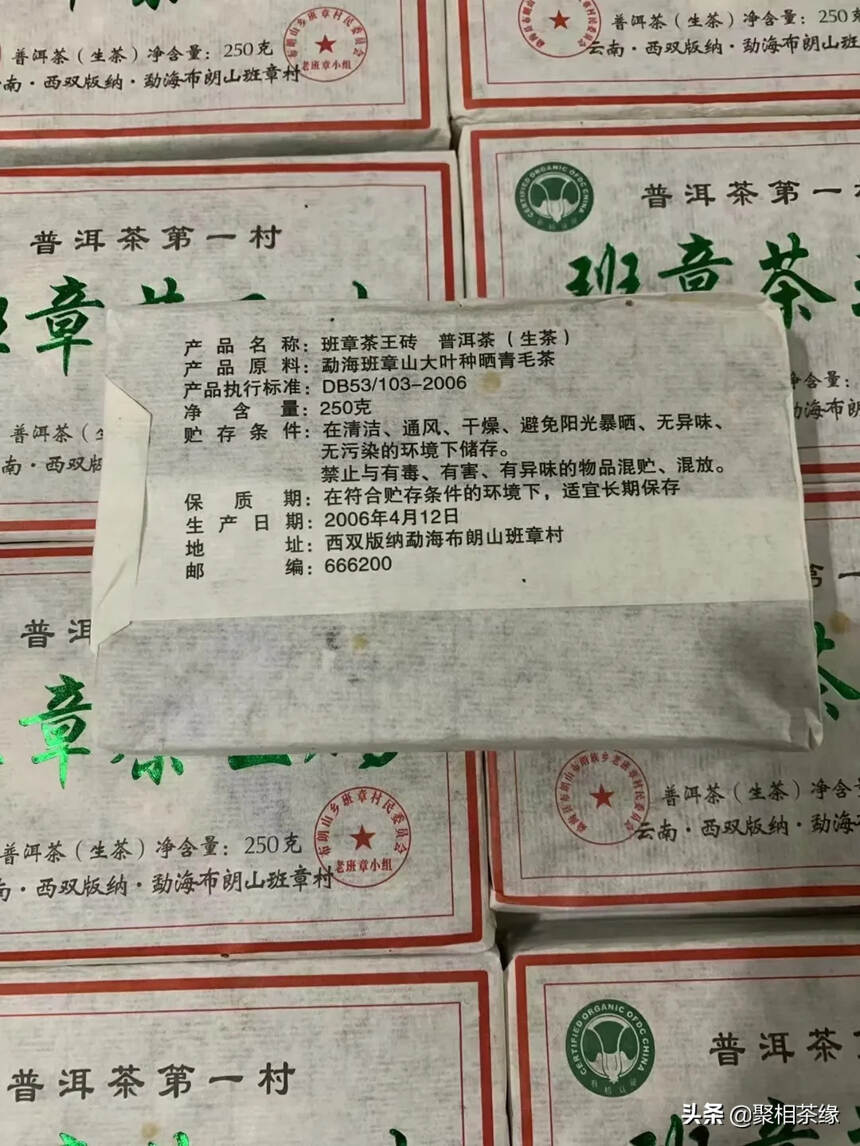 普洱茶（生茶）净含量：250克
南·西双版纳·勐海布朗山班章村
布朗山乡班章村民委员会
老班章小组
普洱茶（生茶）净含量：250
云南·西双版纳·勐海布朗山班
普洱茶第一村
班章茶
CERTIFIED ORGANIC OFDC CHINA
普洱茶第一
班章茶
净含量：
勐海布朗
普洱茶（生
南·西双版纳
产品名称：班章茶王砖 普洱茶（生茶）
产品原料：勐海班章山大叶种晒青毛茶
产品执行标准：DB53/103-2006
净含量：250克
贮存条件：在清洁、通风、干燥、避免阳光暴晒、无异味、
无污染的环境下储存。
禁止与有毒、有害、有异味的物品混贮、混放。
保质期：在符合贮存条件的环境下，适宜长期保存
生产日期：2006年4月12日
地址：西双版纳勐海布朗山班章村
邮编：666200
普洱
章茶王
布朗山乡班章村民委员会
老班章小组
普洱茶（生茶）净含量：250克
南·西双版纳·勐海布朗山班章村
茶
普洱茶（生茶）净含量
云南·西双版纳·勐海布
普洱茶第一村
CERTIFIED ORGANIC OFDC CHINA
有机认证
普洱茶
头条 @聚相茶缘